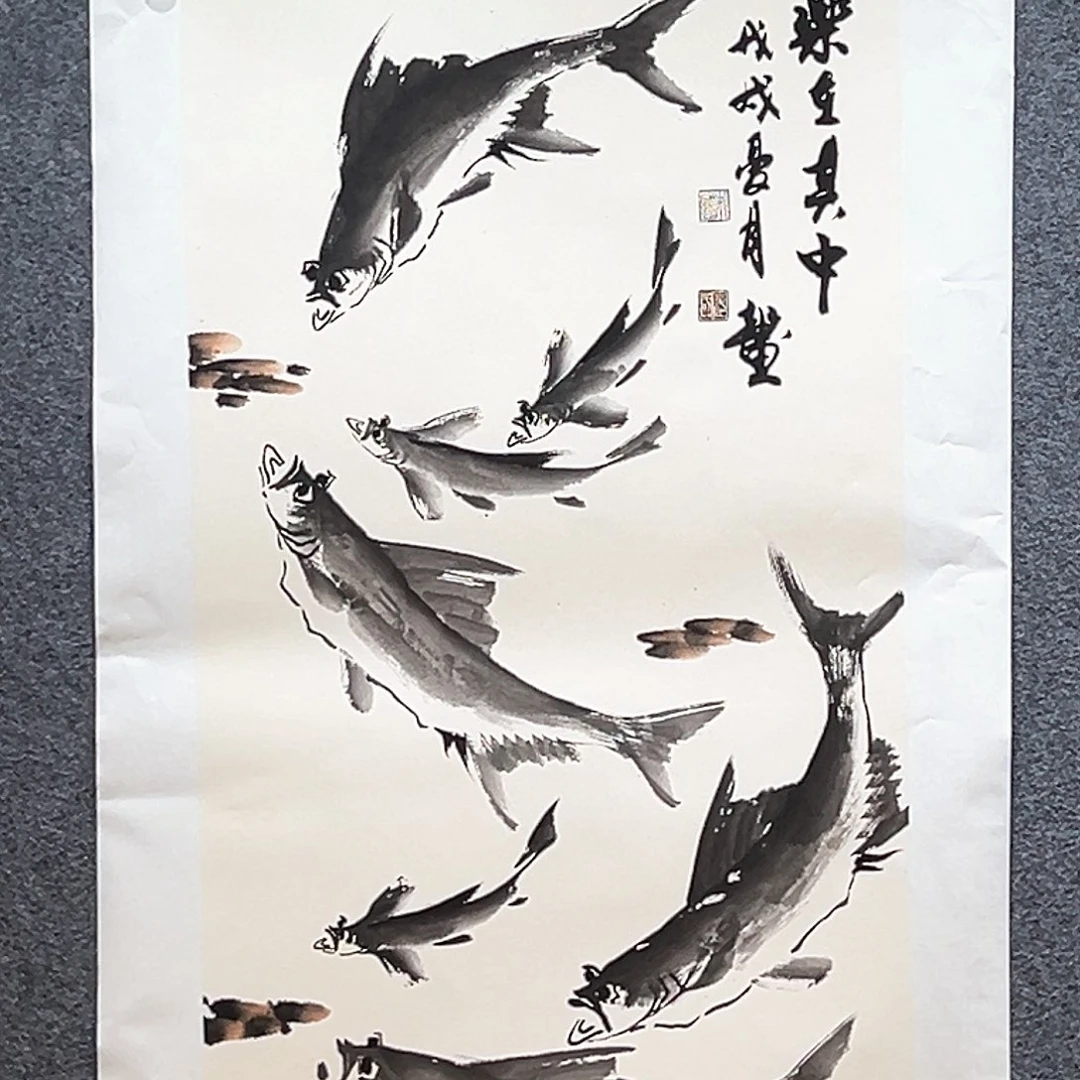 樂在其中
戊戌夏月